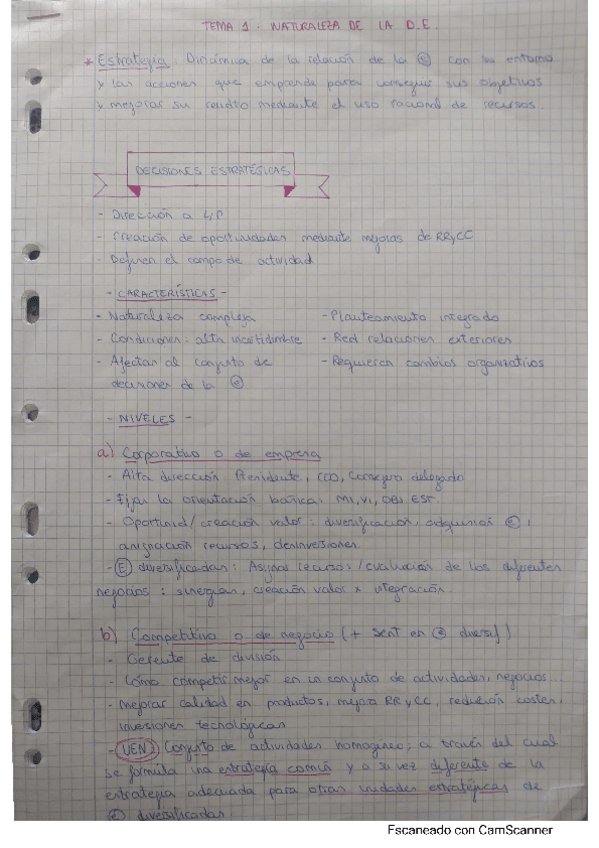 TEMA 1 - NATURALEZA DE LA D.E.
* Estrategia: Dinámica de la relación de la (e) con su entorno
y las acciones que emprende para conseguir sus objetivos
y mejorar su rendto mediante el uso racional de recursos.
DECISIONES ESTRATÉGICAS
- Dirección a L/P
- Creación de oportunidades mediante mejoras de RRyCC
- Definen el campo de actividad
- CARACTERÍSTICAS -
- Naturaleza compleja - Planteamiento integrado
- Condiciones: alta incertidumbre - Red relaciones exteriores
- Afectan al conjunto de - Requieren cambios organizativos
decisiones de la (e)
- NIVELES -
a) Corporativo o de empresa
- Alta dirección: Presidente, CEO, Consejero delegado
- Fijar la orientación básica: MI, VI, OBJ, EST.
- Oportunid/creación valor: diversificación, (e);
asignación recursos, desinversiones.
- (E) diversificadas: Asignar recursos/evaluación de los diferentes
negocios: sinergias, creación valor x integración.
b) Competitivo o de negocio (+ sent en (e) diversif)
- Gerente de división
- Cómo competir mejor en un conjunto de actividades, negocios...
- Mejorar calidad en productos, mejora RR y CC, reducción costes,
inversiones tecnológicas
- (UEN) Conjunto de actividades homogéneo; a través del cual
se formula una estrategia común y a su vez diferente de la
estrategia adecuada para otras unidades estratégicas de
(e) diversificadas
Escaneado con CamScanner